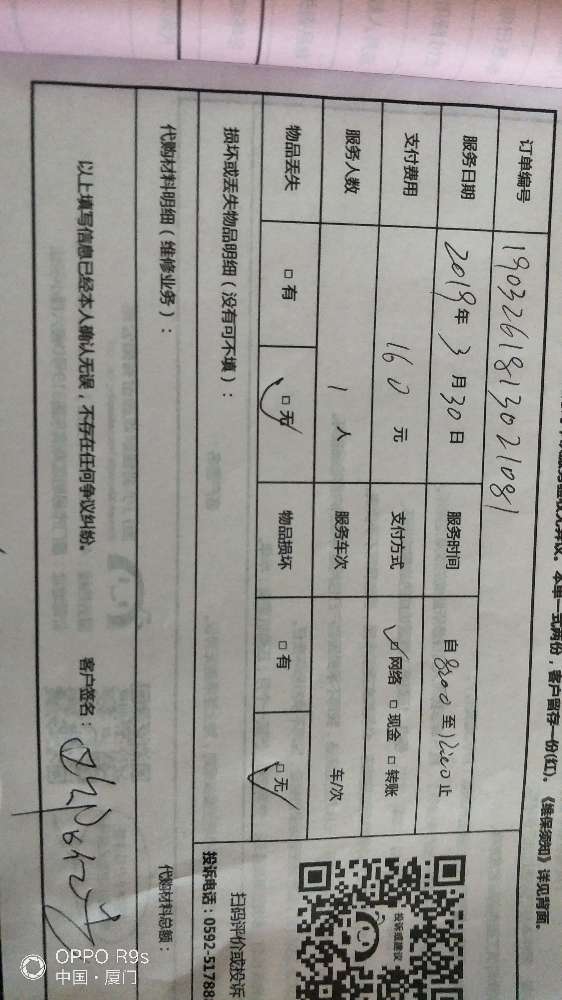 服务验收无异议。本单一式两份，客户留存一份(红)。《维保须知》详见背面。
订单编号 1903261813021081
服务日期 2019年3月30日 服务时间 自8:00至12:00止
支付费用 160元 支付方式 □网络 □现金 □转账
服务人数 1人 服务车次 车/次
物品丢失 □有 □无 物品损坏 □有 □无
损坏或丢失物品明细（没有可不填）：
代购材料明细（维修业务）： 代购材料总额：
以上填写信息已经本人确认无误，不存在任何争议纠纷。 客户签名：
投诉或建议
扫码评价或投诉
投诉电话：0592-51788
OPPO R9s
中国·厦门